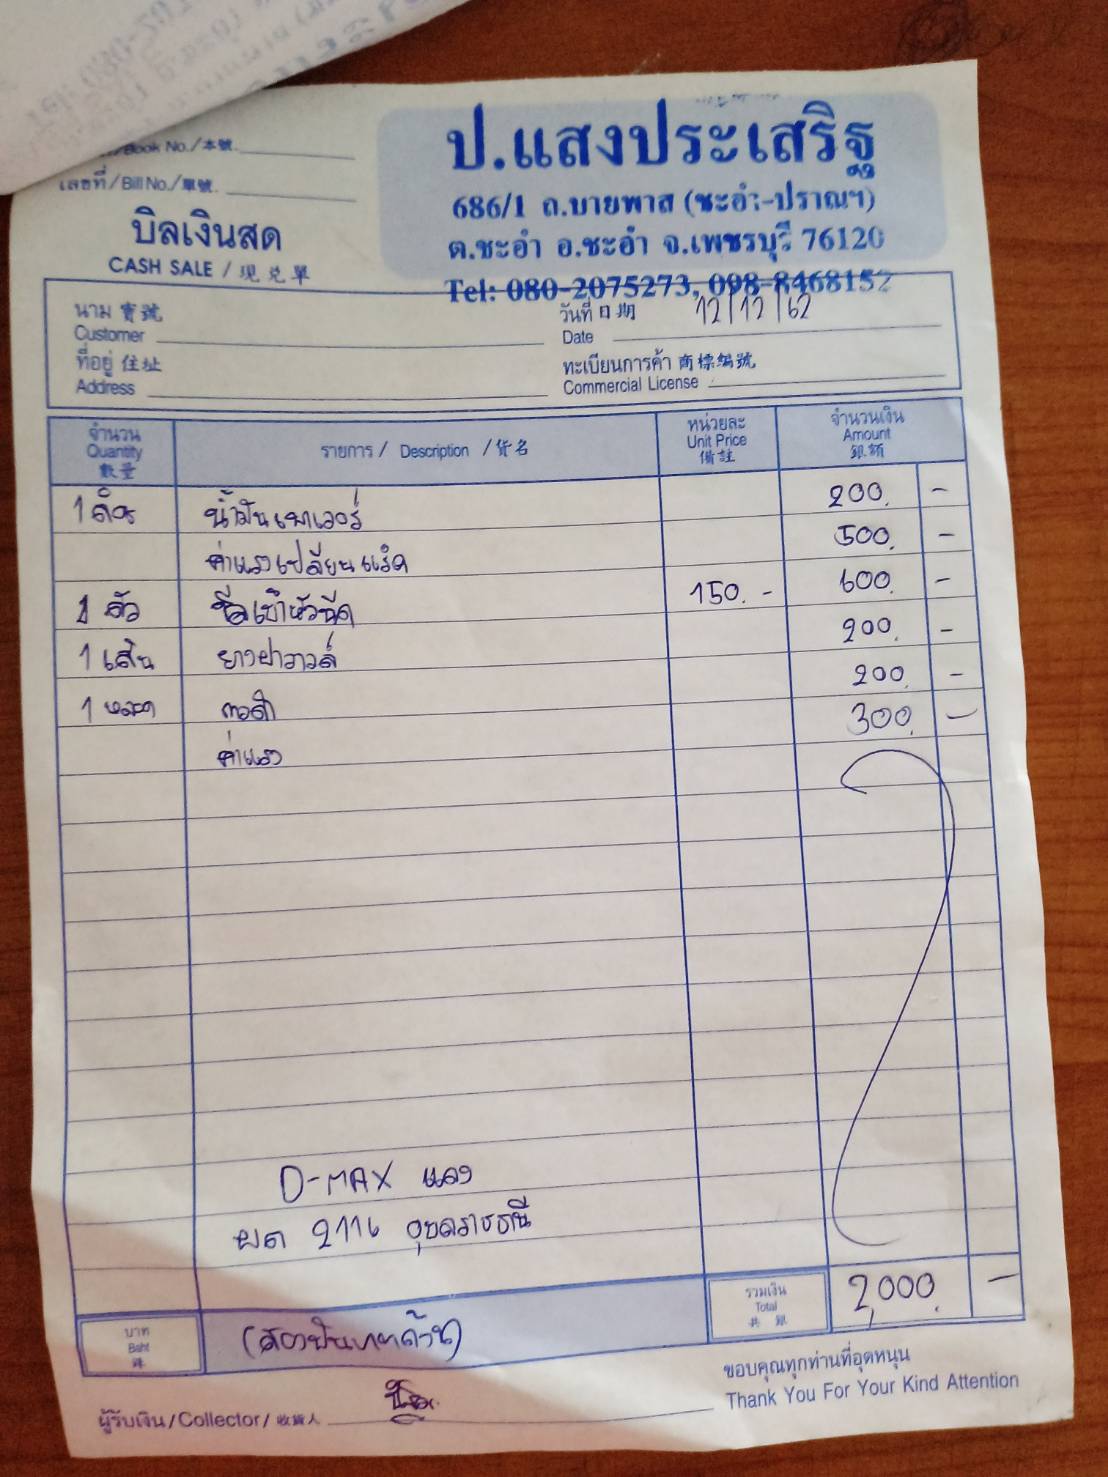 Book No./本號.
เลขที่/Bill No./單號.
บิลเงินสด
CASH SALE / 現兌單
ป.แสงประเสริฐ
686/1 ถ.บายพาส (ชะอำ-ปราณฯ)
ต.ชะอำ อ.ชะอำ จ.เพชรบุรี 76120
Tel: 080-2075273, 098-8468152
นาม 寶號
Customer
วันที่ 日期
Date
12/12/62
ที่อยู่ 住址
Address
ทะเบียนการค้า 商標編號
Commercial License
จำนวน
Quantity
數量
รายการ / Description / 貨名
หน่วยละ
Unit Price
備註
จำนวนเงิน
Amount
銀額
1 ลิตร น้ำมันเพาเวอร์ 200.-
ค่าแรงเปลี่ยนแร็ค 500.-
ตัว ซีลเบ้าหัวฉีด 150.- 600.-
1 เส้น ยางฝาวาวล์ 200.-
1 หลอด กาวดำ 200.-
ค่าแรง 300.-
D-MAX แดง
ผต 2116 อุบลราชธานี
บาท
Baht
(สองพันบาทถ้วน)
รวมเงิน
Total
共銀
2,000.-
ผู้รับเงิน/Collector/收銀人
ขอบคุณทุกท่านที่อุดหนุน
Thank You For Your Kind Attention